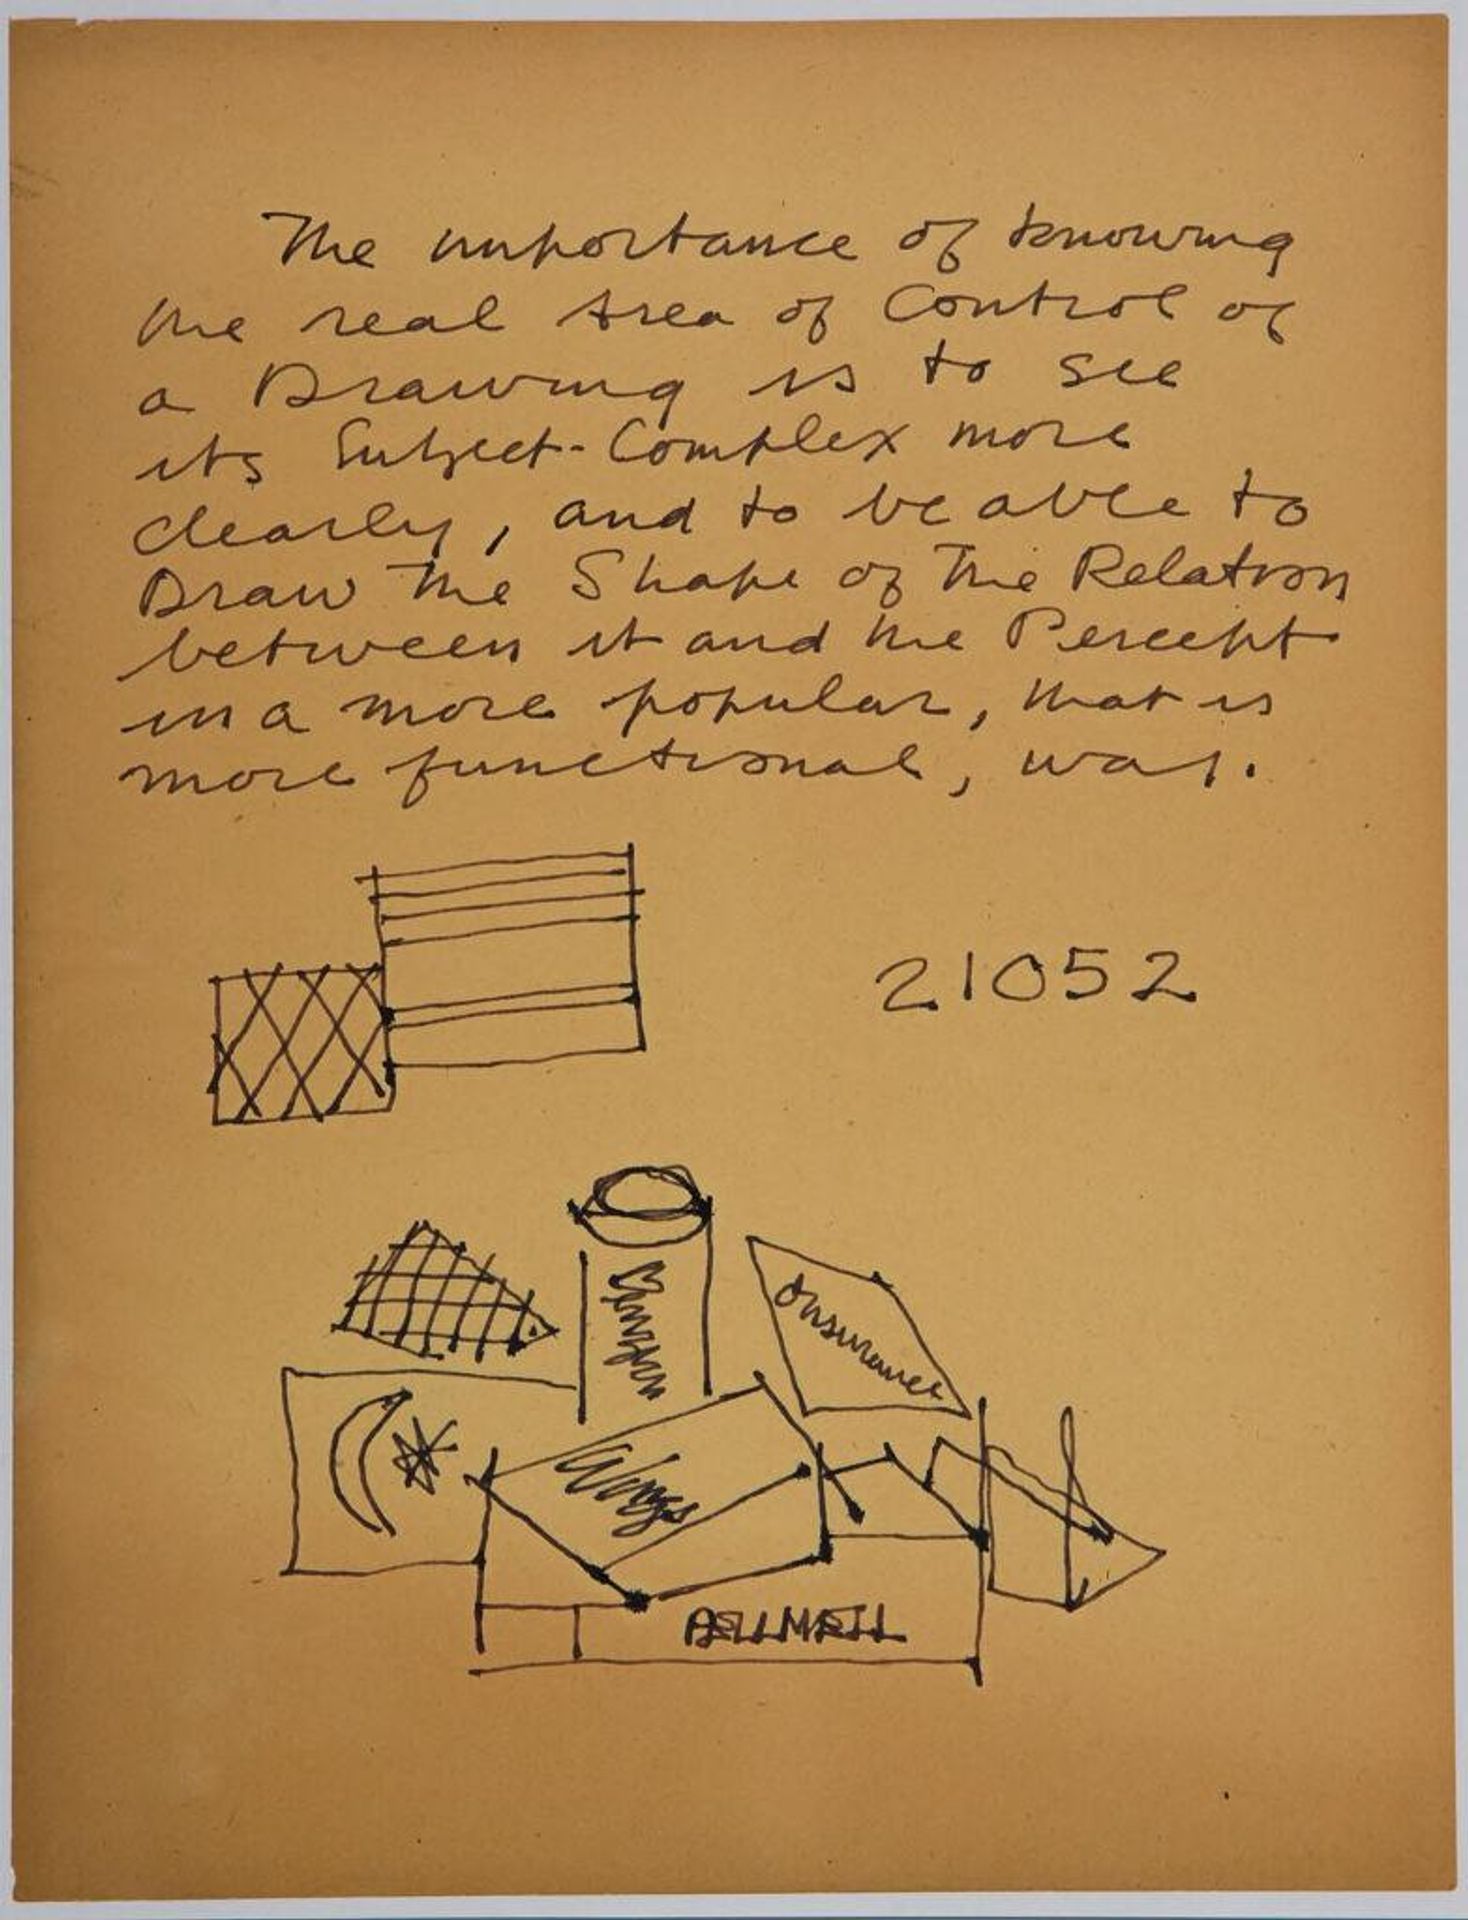 The importance of knowing
the real Area of Control of
a Drawing is to see
its Subject-Complex more
clearly, and to be able to
Draw the Shape of the Relation
between it and the Percept
in a more popular, that is
more functional, way.
21052
Insurance
Wings
PELLMELL